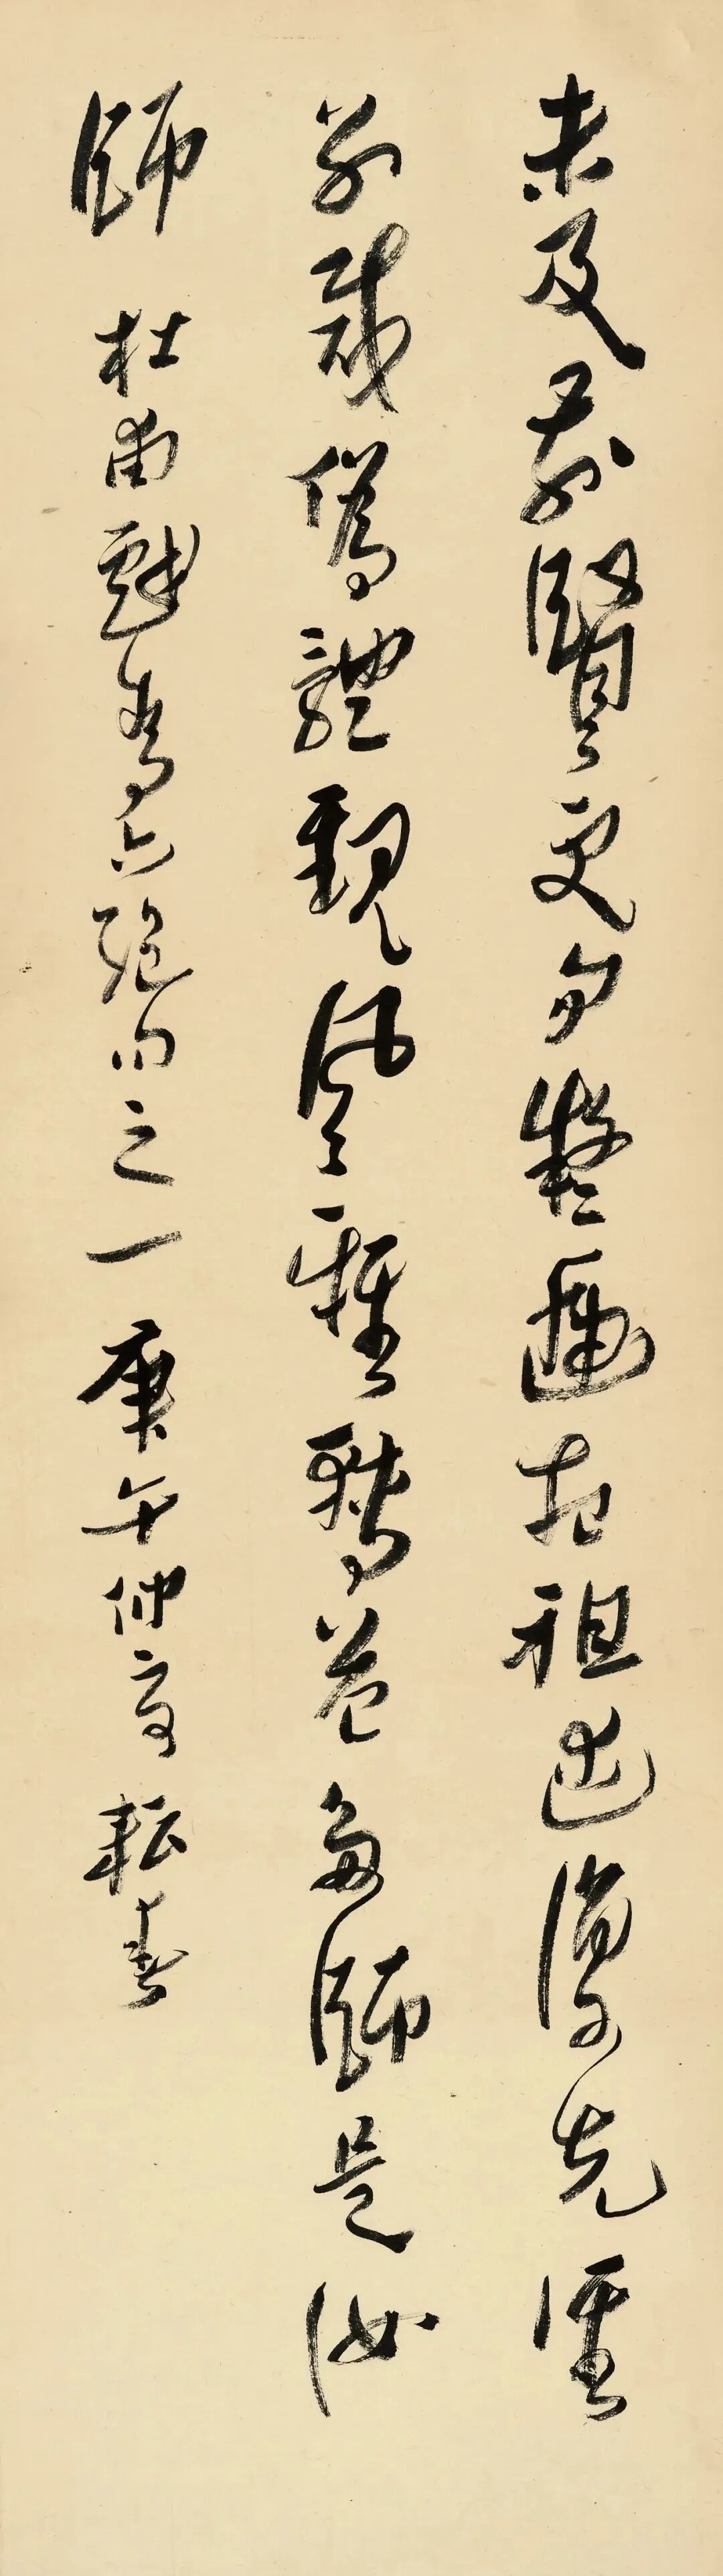 未及前賢更勿疑遞相祖述復先誰
別裁偽體親風雅轉益多師是汝
師 杜甫戲為六絕句之一 庚午仲夏 耘